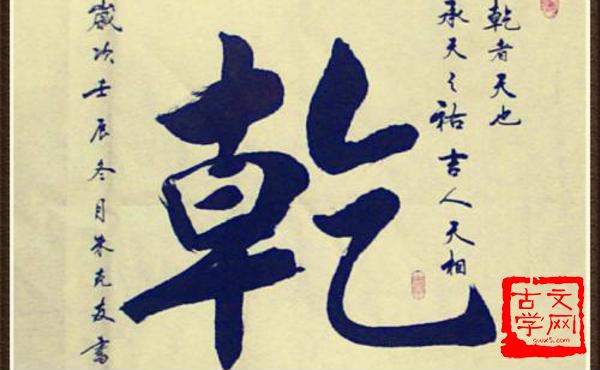 乾者天也
承天之祐吉人天相
乾
歲次壬辰冬月朱克友書
古文
学网
gwx5.com